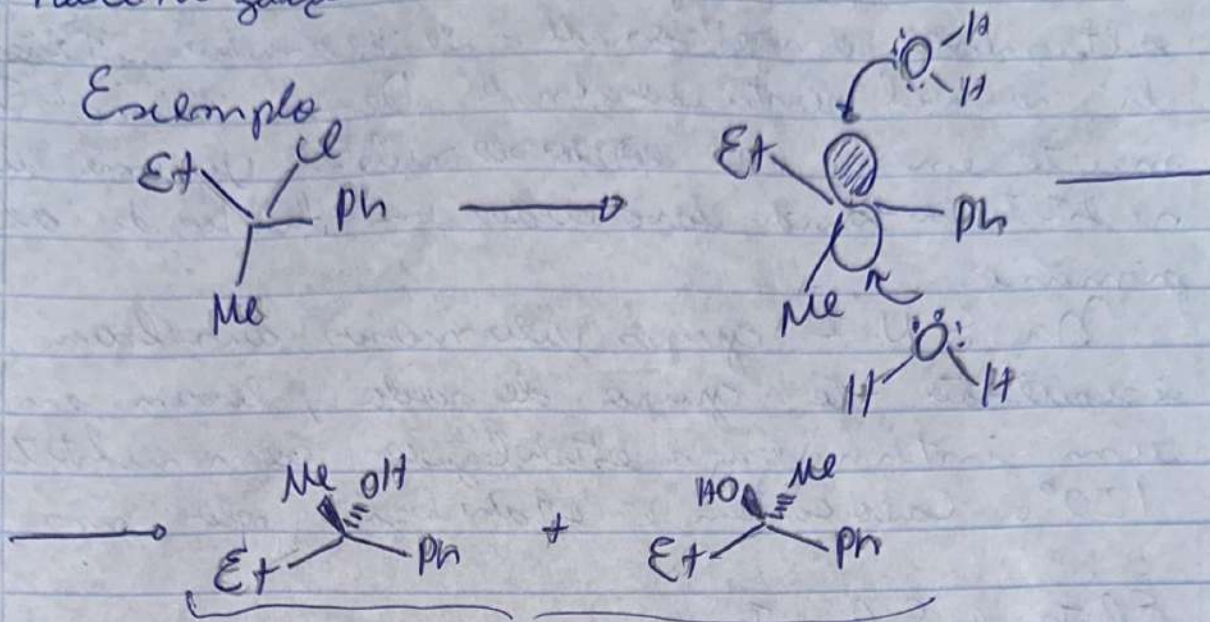 Exemplo
Et Cl Ph Me
Et Ph Me
:O: H H
:O: H H
Me OH Et Ph + HO Me Et Ph